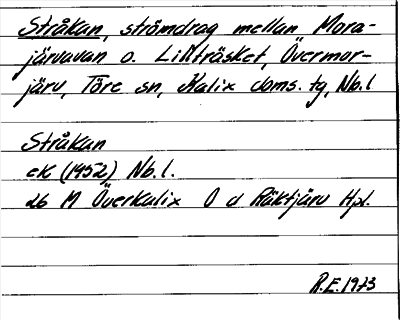 Stråkan, strömdrag mellan Mora-
järvavan o. Lillträsket, Övermor-
järv, Töre sn, Kalix doms. tg, Nb.l
Stråkan
ek (1952) Nb.l.
26 M Överkalix O d Räktjärv Hpl.
R.E. 1973